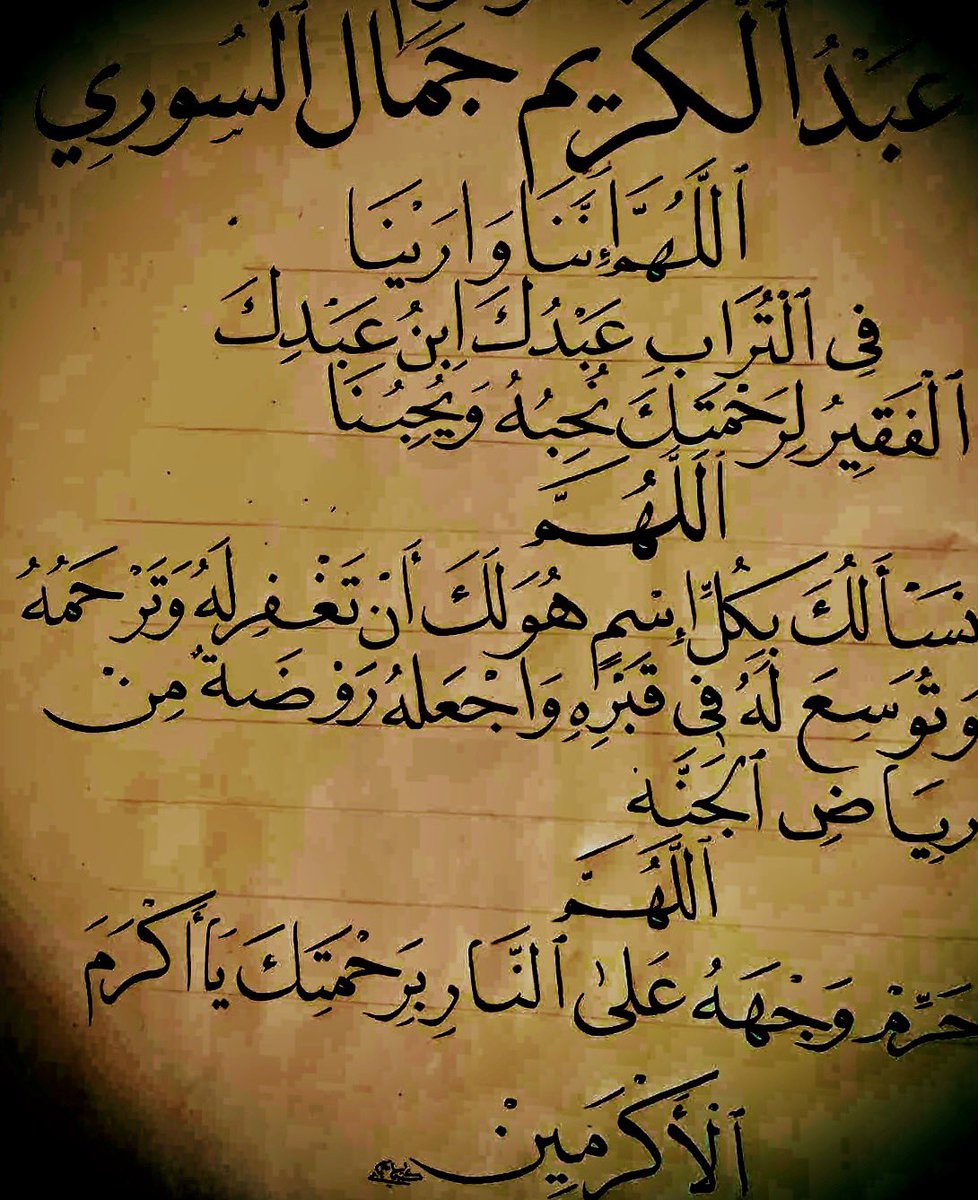 عَبْدُٱلْكَرِيم جَمَال ٱلسُورِي
ٱللَّهُمَّ إِنَّنَا وَارَيْنَا
فِي ٱلْتُرَابِ عَبْدُكَ ابنُ عَبْدِكَ
ٱلْفَقِيرُ لِرَحْمَتِكَ نُحِبُهُ وَيُحِبُنَا
ٱللَّهُمَّ
نَسْأَلُكَ بِكُلِّ إِسْمٍ هُوَ لَكَ أَنْ تَغْفِر لَهُ وَتَرْحَمُهُ
وَتُوَسِعَ لَهُ فِي قَبْرِهِ وَاجْعَلهُ رَوْضَةٌ مِنْ
رِيَاضِ ٱلجَنَّة
ٱللَّهُمَّ
حَرِّمْ وَجْهَهُ عَلىٰ ٱلنَّارِ بِرَحْمَتِكَ يَا أَكْرَمَ
ٱلْأَكْرَمِينْ